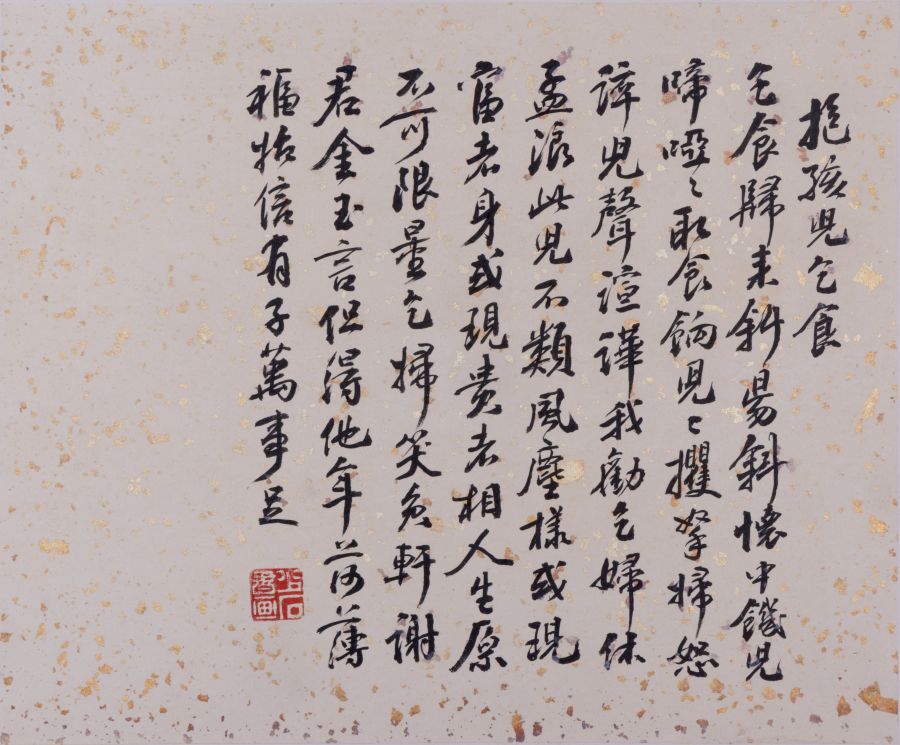 抱孩兒乞食
乞食歸來斜昜斜懷中饑兒
啼啞々取食餉兒々攫拏婦怒
誶兒聲諠譁我勸乞婦休
孟浪此兒不類風塵樣或現
富者身或現貴者相人生原
不可限量乞婦笑軒謝
君金玉言但得他年荷薄
福怙信有子萬事足